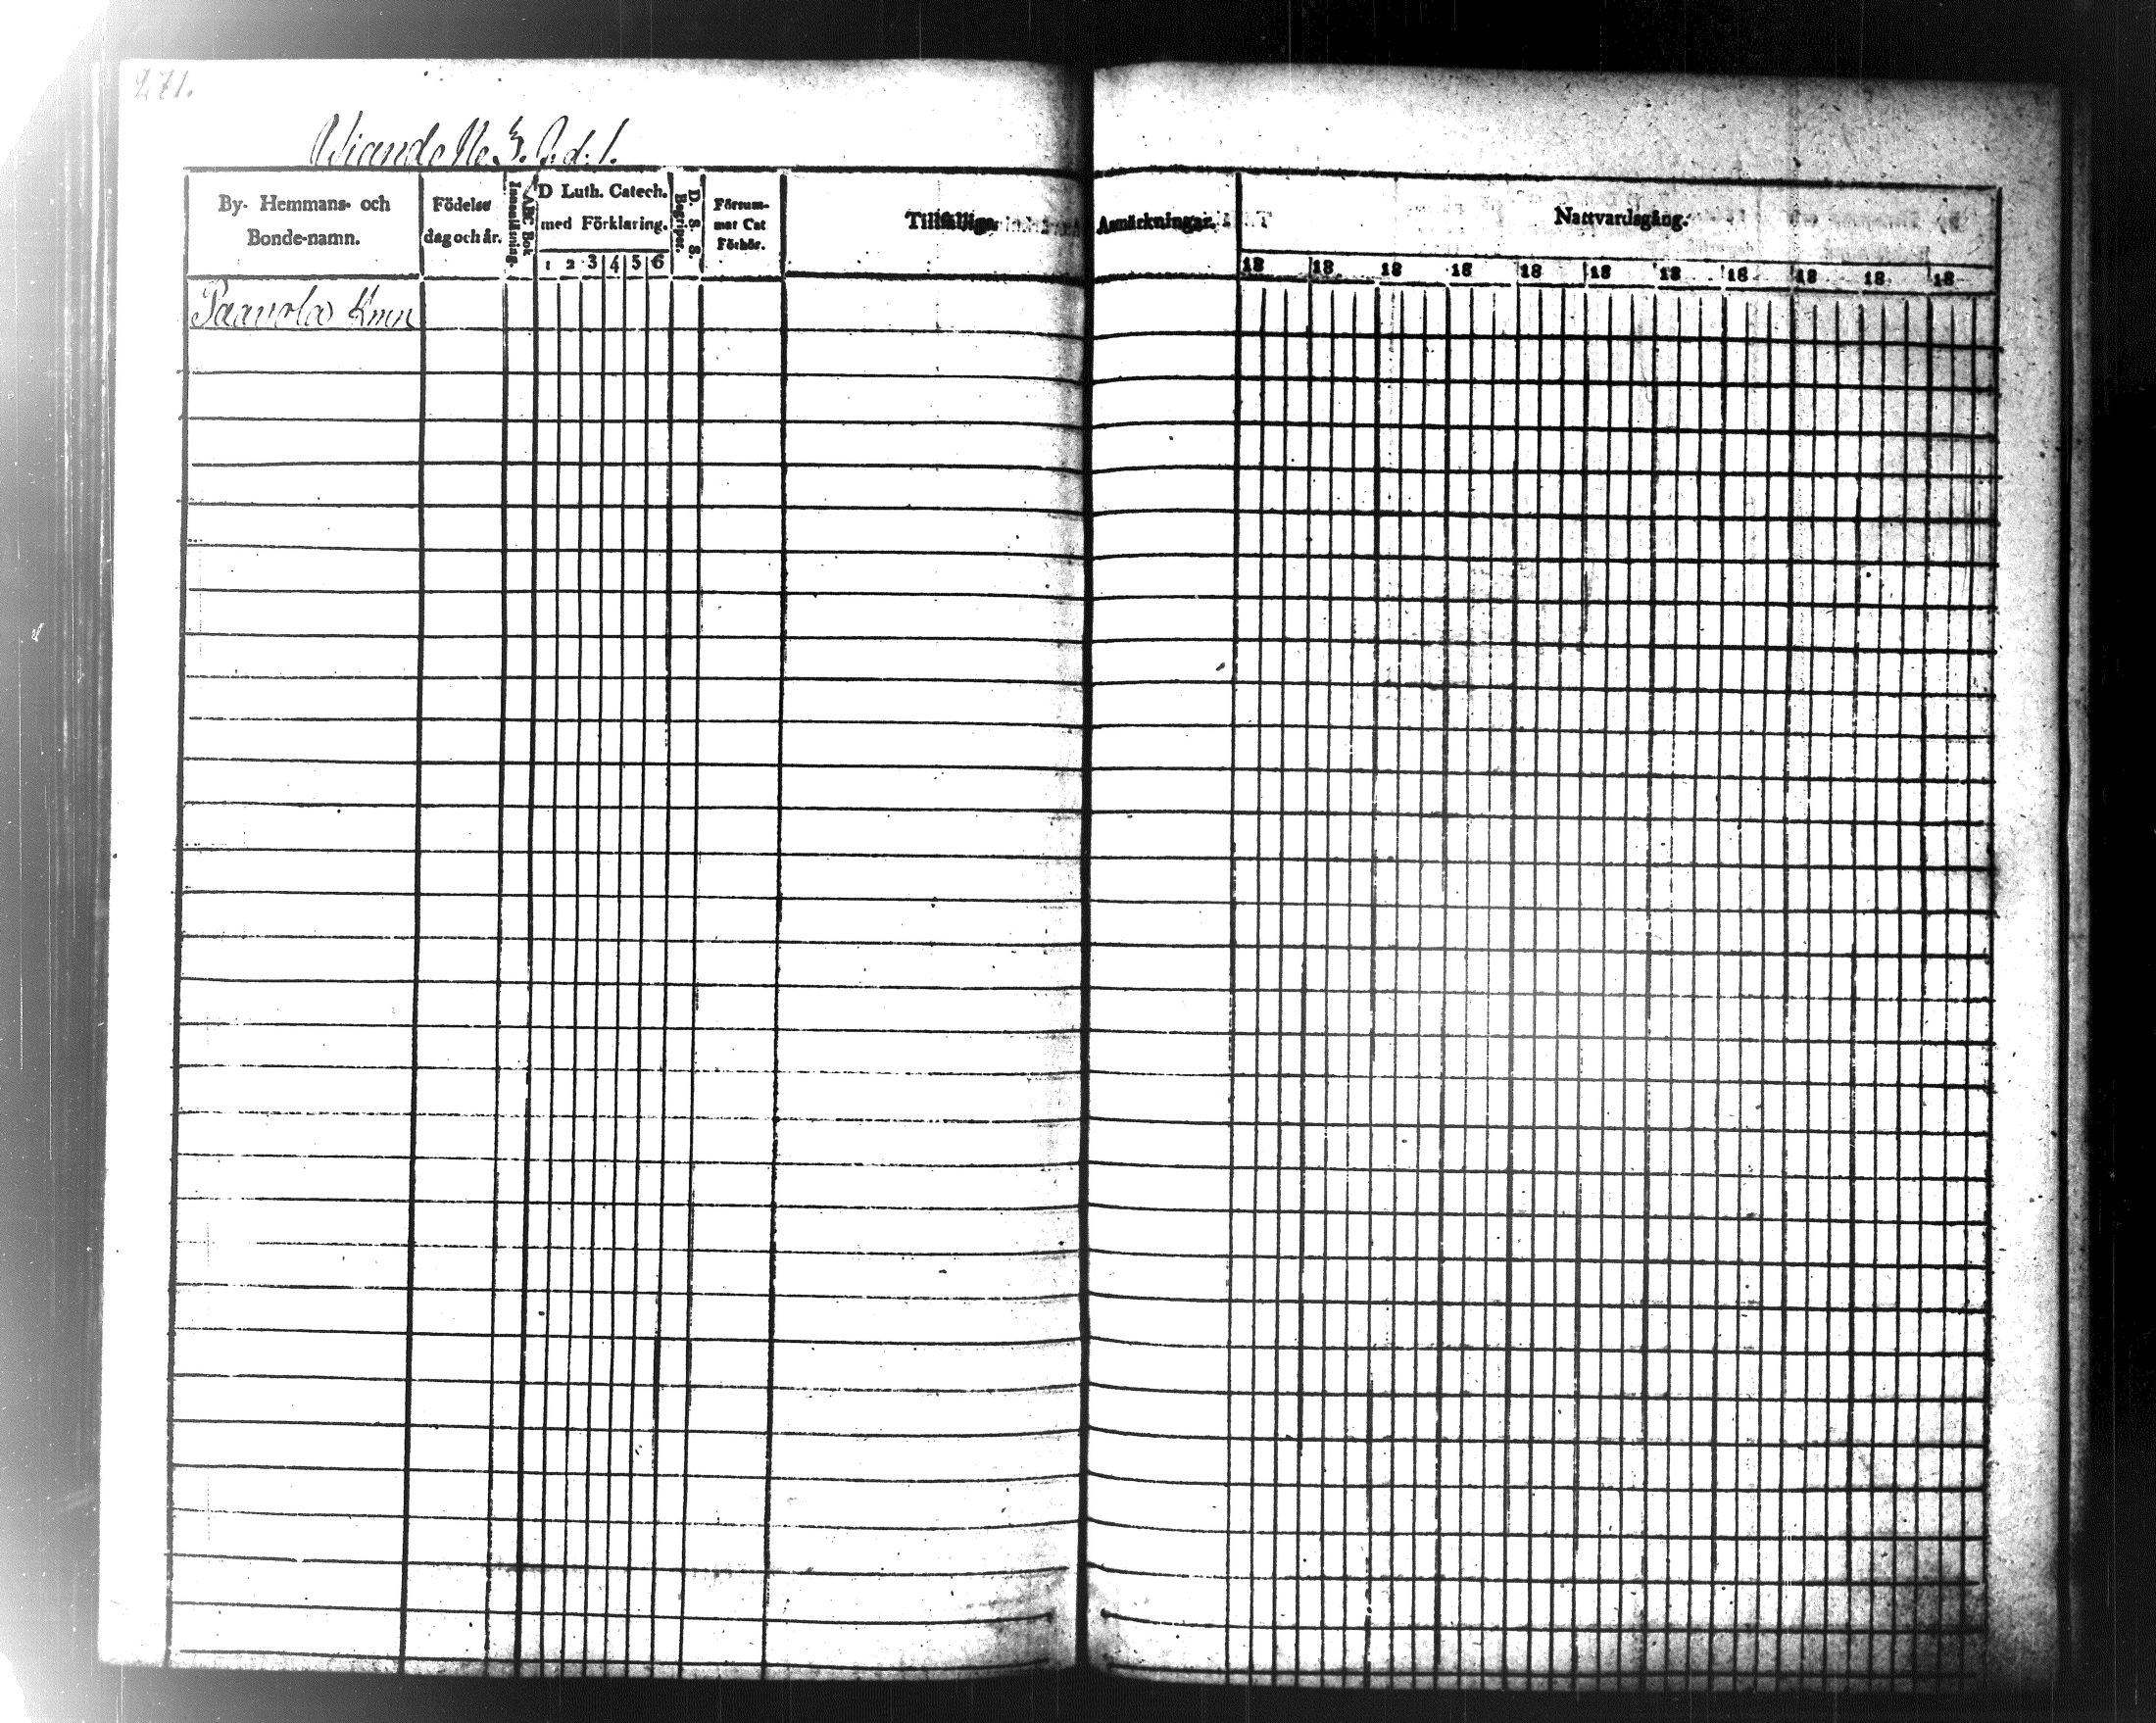 271.
Wiando No 3. J. d. 1.
By- Hemmans- och Bonde-namn.
Födelse dag och år.
Innanläsning.
ABC Bok
D Luth. Catech. med Förklaring.
1 2 3 4 5 6
D. S. S. Begriper.
Försummar Cat Förhör.
Tillfällige
Anmärkningar.
Nattvardsgång.
18 18 18 18 18 18 18 18 18 18 18
Paavola Kmn